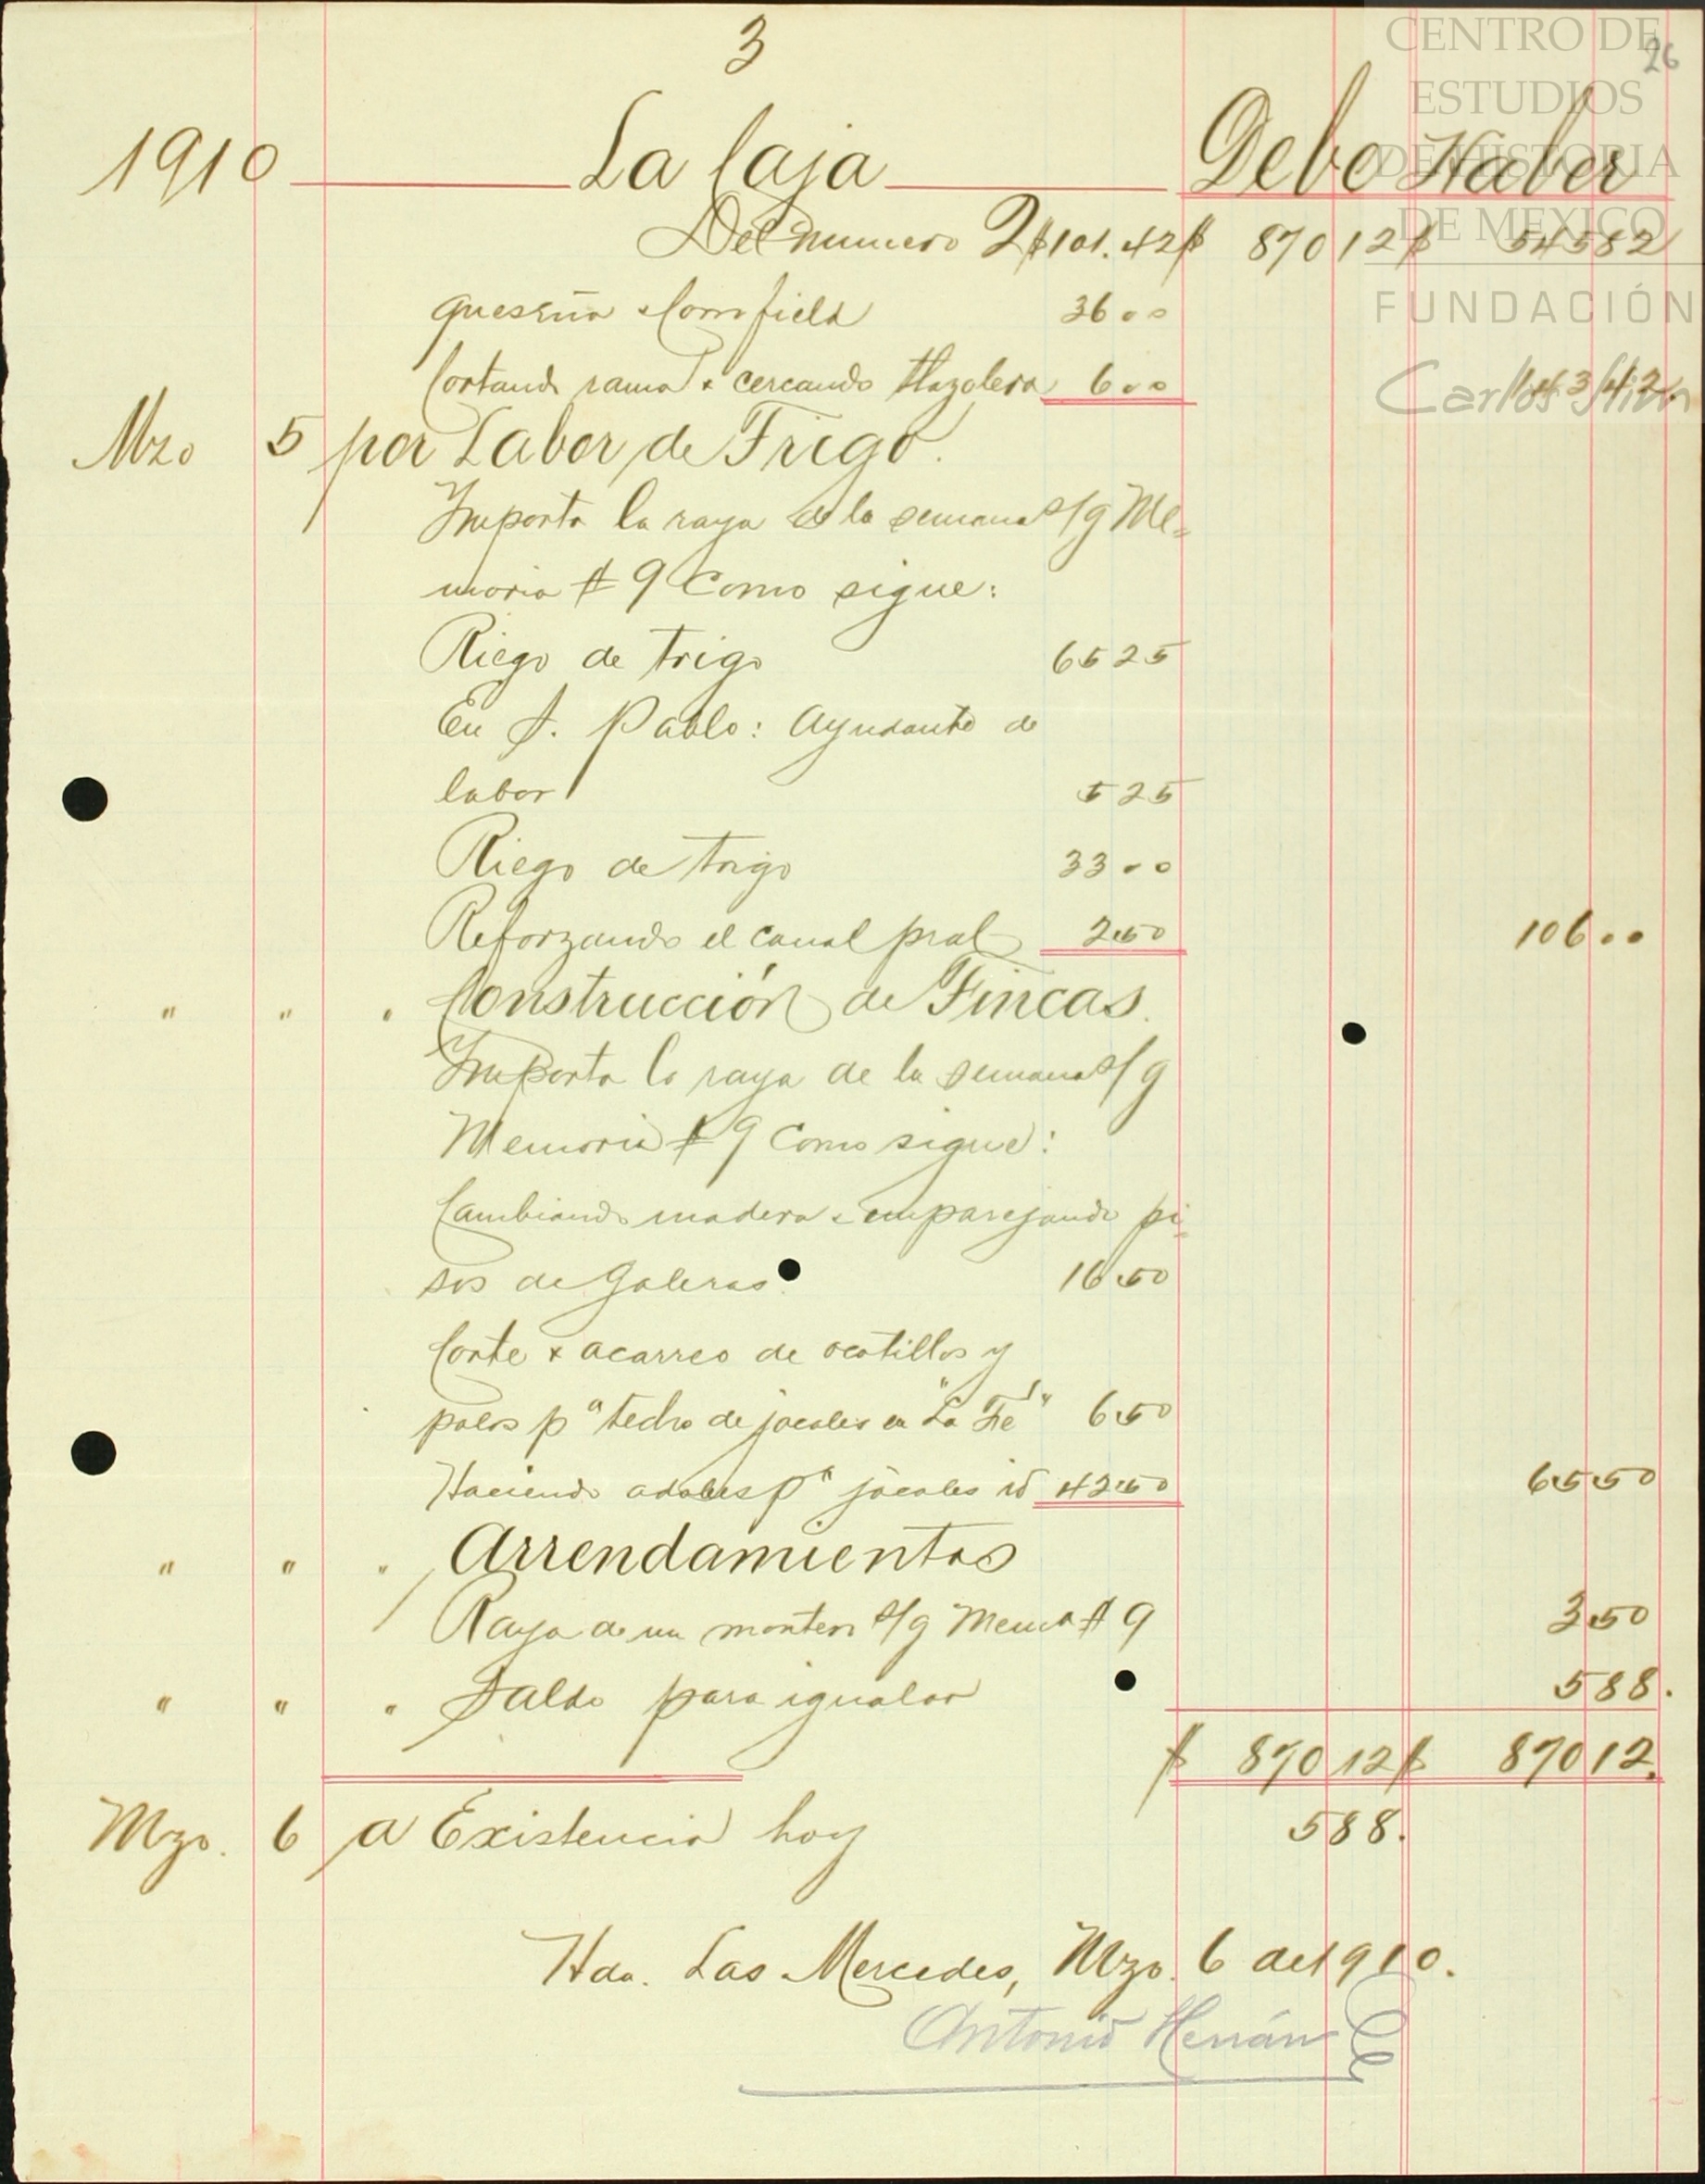 3
26
CENTRO DE
ESTUDIOS
DE HISTORIA
DE MEXICO
FUNDACIÓN
Carlos Slim
1910 La Caja Debe Haber
Del numero 2 $101.42 $ 870 12 $ 545 82
Cornfield 36 00
Cortando rama & cercando tlazolera 6 00 143 42.
Mzo 5 por Labor de Trigo.
Importa la raya de la semana s/g Me=
moria # 9 como sigue:
Riego de trigo 65 25
En S. Pablo: Ayudante de
labor 5 25
Riego de trigo 33 00
Reforzando el canal pral 2 50 106 00
" " " Construcción de Fincas.
Importa la raya de la semana s/g
Memoria # 9 como sigue:
Cambiando madera & emparejando pi=
sos de Galeras. 16 50
Corte & acarreo de ocotillos y
palos pª techo de jacales en "La Fé" 6 50
Haciendo adobes pª jacales id 42 50 65 50
" " " Arrendamientos
Raya de un montero s/g Memª # 9 3 50
" " " Saldo para igualar 5 88.
$ 870 12 $ 870 12.
Mzo. 6 a Existencia hoy 5 88.
Hda. Las Mercedes, Mzo. 6 de 1910.
Antonio Herrán